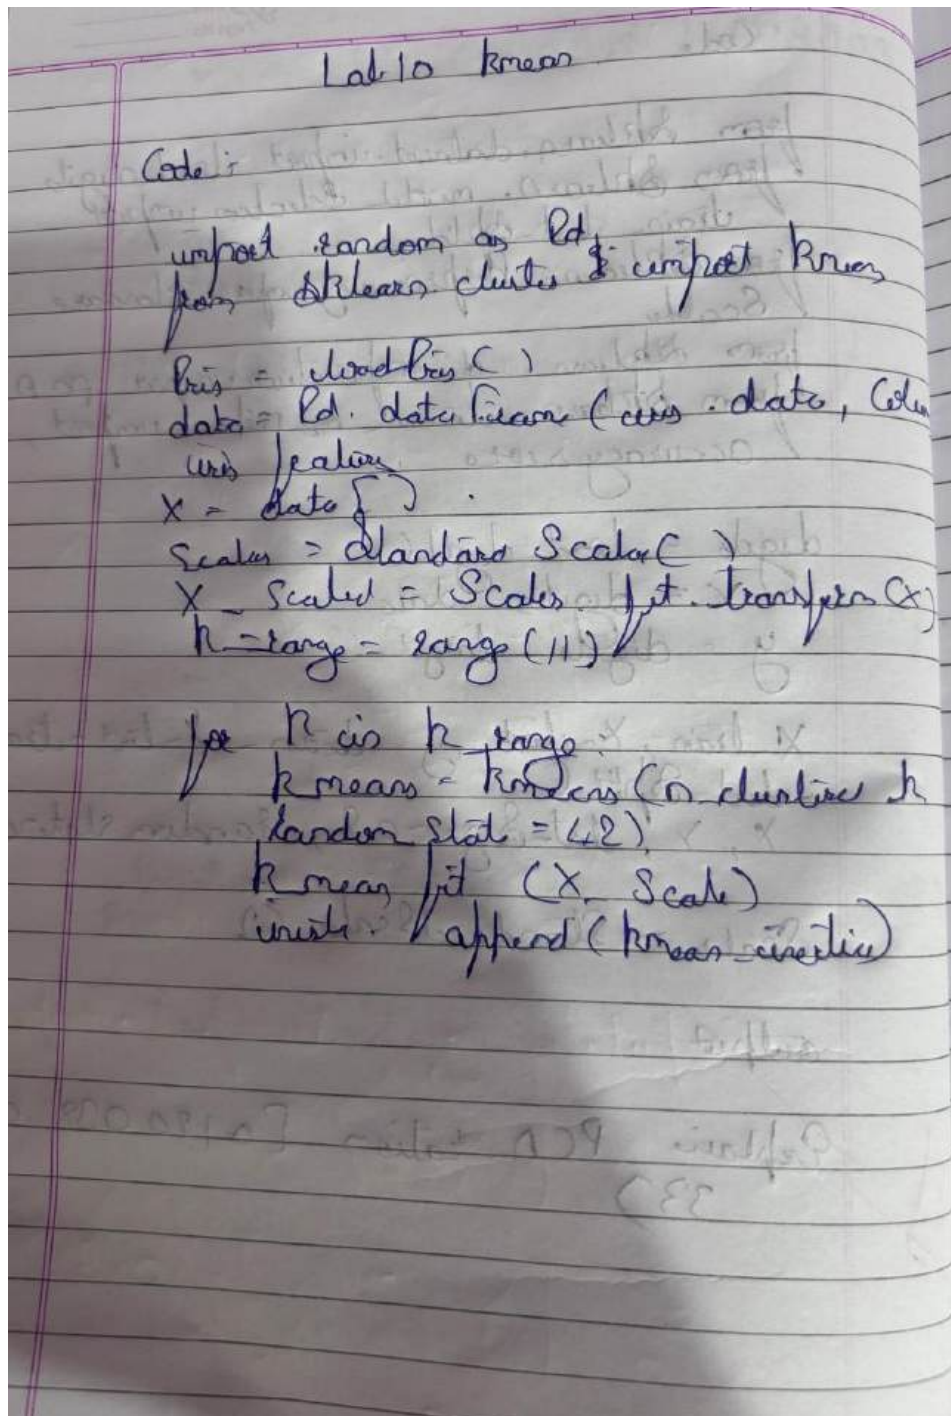 Lab 10 kmean
Code:
import random as Rd
from sklearn cluster import kmeans
Iris = load Iris ( )
data = Rd. data Fram (iris . data, Colum
iris feature
X = data [ ]
Scaler = Standard Scaler ( )
X_Scaled = Scaler. fit. transform (X)
k_range = range (11)
for k in k_range:
kmeans = kmeans (n_clusters k
random stat = 42)
kmean fit (X_Scale)
append (kmean_inertia)